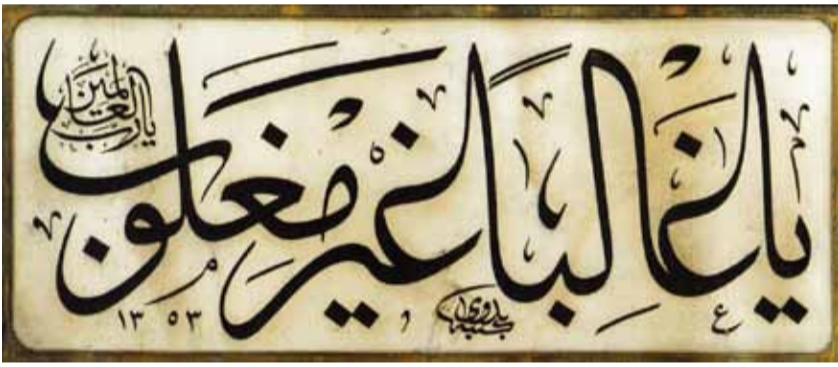 يا غالبًا غير مغلوب
يا رب العالمين
كتبه بدوي
١٣٥٣